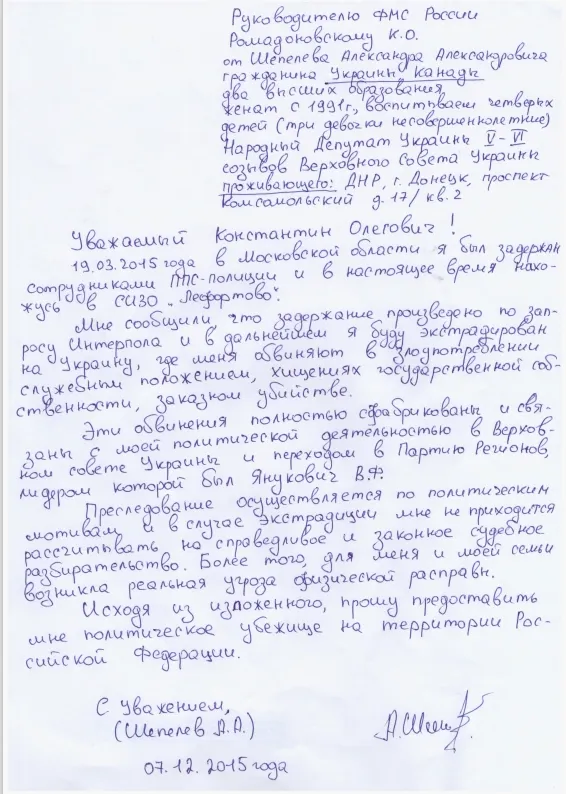 Руководителю ФМС России
Ромадоновскому К.О.
от Шепелева Александра Александровича
гражданина Украины Канады
два высших образования,
женат с 1991г., воспитываем четверых
детей (три девочки несовершеннолетние)
Народный Депутат Украины V-VI
созывов Верховного Совета Украины
проживающего: ДНР, г. Донецк, проспект
Комсомольский д.17/ кв.2
Уважаемый Константин Олегович!
19.03.2015 года в Московской области я был задержан
сотрудниками ППС-полиции и в настоящее время нахо-
жусь в СИЗО „Лефортово".
Мне сообщили, что задержание произведено по зап-
росу Интерпола и в дальнейшем я буду экстрадирован
на Украину, где меня обвиняют в злоупотреблении
служебным положением, хищениях государственной соб-
ственности, заказном убийстве.
Эти обвинения полностью сфабрикованы и свя-
заны с моей политической деятельностью в Верхов-
ном совете Украины и переходом в Партию Регионов,
лидером которой был Янукович В.Ф.
Преследование осуществляется по политическим
мотивам и в случае экстрадиции мне не приходится
рассчитывать на справедливое и законное судебное
разбирательство. Более того, для меня и моей семьи
возникла реальная угроза физической расправы.
Исходя из изложенного, прошу предоставить
мне политическое убежище на территории Рос-
сийской Федерации.
С уважением,
(Шепелев А.А.)
07.12.2015 года